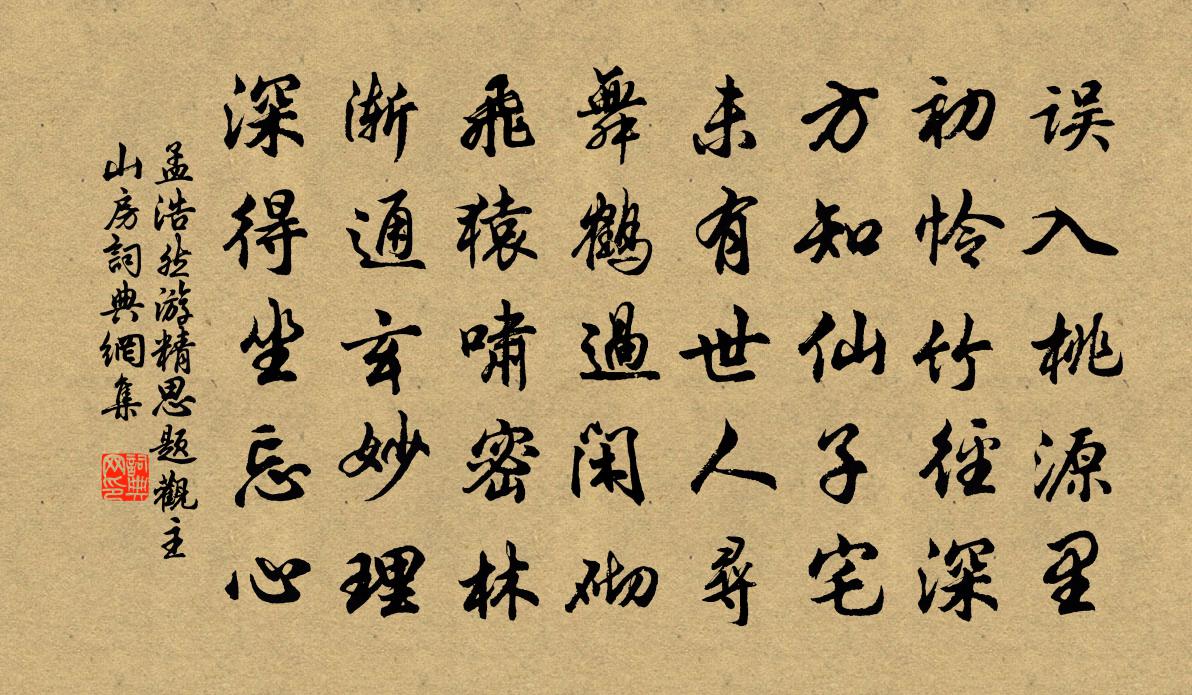 误入桃源里
初怜竹径深
方知仙子宅
未有世人寻
舞鹤过闲砌
飞猿啸密林
渐通玄妙理
深得坐忘心
孟浩然游精思题觀主
山房詞典網集
詞典
网印